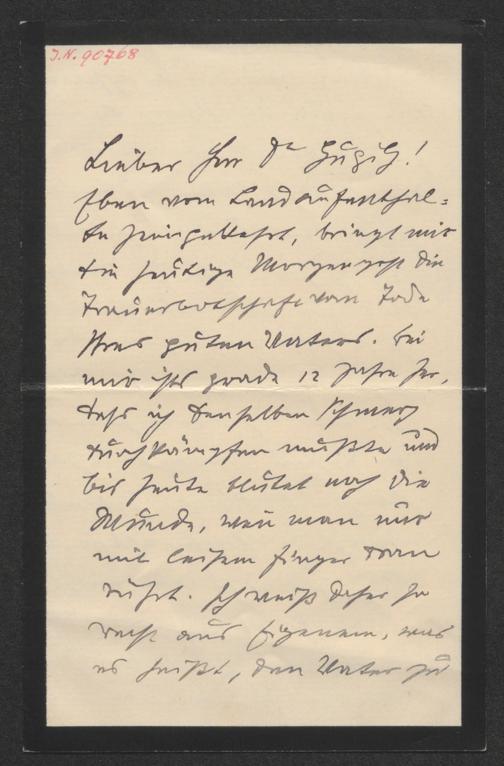 J.N. 90768
Lieber Herr Dr Gugitz!
Eben vom Landaufenthal=
te zurückgekehrt, bringt mir
die heutige Morgenpost die
Trauerbotschaft vom Tode
Ihres guten Vaters. Bei
mir ists grade 12 Jahre her,
dass ich denselben Schmerz
durchkämpfen mußte und
bis heute blutet noch die
Wunde, wenn man nur
mit leisem Finger dran
rührt. Ich weiß daher so
recht aus Eigenem, was
es heißt, den Vater zu